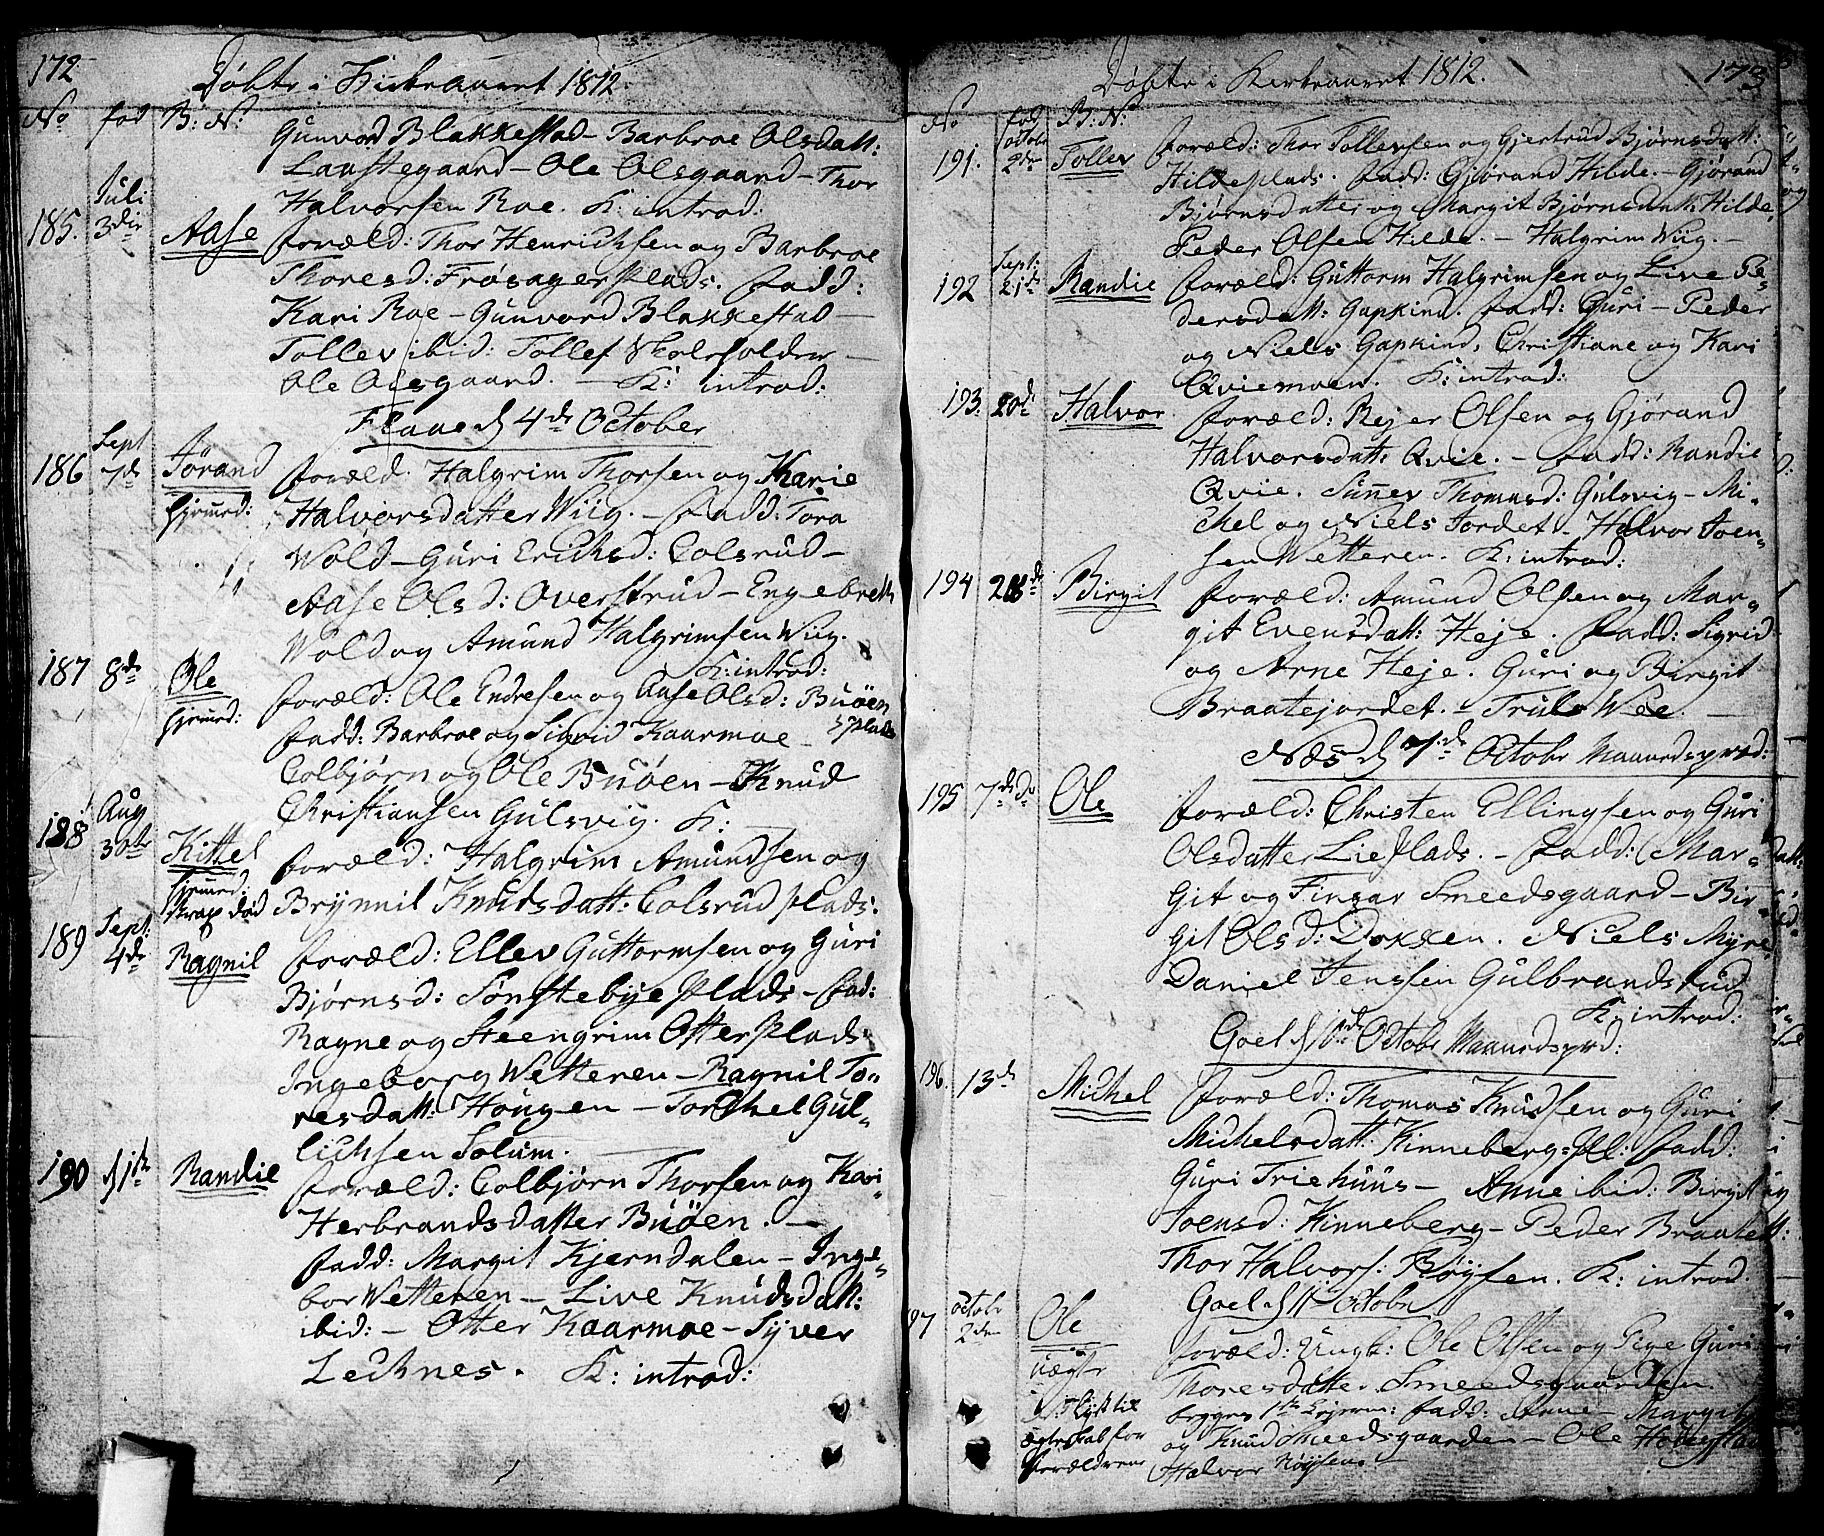 172
Døbte i Kirkeaaret 1812.
No fød B: N:
Gunvord Blakkestad - Barbroe Olsdatt:
Laustegaard - Ole Olsgaard - Thor
Halvorsen Roe. K: introd:
185. Juli 3die Aase foræld: Thor Henrichsen og Barbroe
Thoresd: Frøsager Plads. fadd:
Kari Roe - Gunvord Blakkestad -
Tollev ibid: Tollef Skoleholder -
Ole Olsgaard. - K: introd:
Flaae d 4de October
186 Sept 7de Jørand foræld. Halgrim Thorsen og Karie
hjemed: Halvorsdatter Wiig. - Fadd: Tora
Wold - Guri Erichsd: Colsrud -
Aase Olsd: Overstrud - Engebreth
Wold og Amund Halgrimsen Wiig.
K: introd:
187 8de Ole foræld: Ole Endresen og Aase Olsd: Buøen
hjemed: fadd: Barbroe og Sigrid Kaarmoe - Plads
Colbjørn og Ole Buøen - Knud
Christiansen Gulsvig. K:
188 Aug 30te Kittel foræld: Halgrim Amundsen og
hjemed: strax død Brynnil Knudsdatt: Colsrud Plads.
189 Sept: 4de Ragnil foræld: Ellev Guttormsen og Guri
Bjørnsd: Sønstebye Plads - Fad:
Ragne og Steengrim Otter Plads
Ingeborg Wetteren - Ragnil To-
resdatt: Hougen - Torchel Gul-
lichsen Solum.
190 d 1te Randie foræld: Colbjørn Thorsen og Kari
Herbrandsdatter Buøen. -
fadd: Margit Kjerndalen - Inge-
bor Wetteren - Live Knudsdatt:
ibid: - Otter Kaarmoe - Syver
Lechnes. K: introd:
Døbte i Kirkeaaret 1812. 173
No fød B: N:
191. Octobr 2den Tollev foræld: Thor Tollevsen og Gjertrud Bjørnsdatt:
Hilde Plads. fadd: Gjørand Hilde. - Gjørand
Bjørnsdatter og Margit Bjørnsdatt: Hilde.
Peder Olsen Hilde. - Halgrim Wiig. -
192 Sept: 21de Randie foræld: Guttorm Halgrimsen og Live Pe-
dersdatt: Gapkind. fadd: Guri - Peder
og Niels Gapkind, Christiane og Kari
Qviemoen. K: introd:
193. 20de Halvor foræld: Rejer Olsen og Gjørand
Halvorsdatt: Qvie. - fadd: Randie
Qvie. Sunnev Thomasd: Gulsvig - Mi-
chel og Niels Jordet - Halvor Joen-
sen Wetteren. K: introd:
194 28de Birgit foræld: Amund Olsen og Mar-
git Evensdatt: Heje. fadd: Sigrid
og Arne Heje. Guri og Birgit
Braatejordet. - Truls Wee. -
Næs d 7de Octobr Maanedspræd:
195 7de do Ole foræld: Christen Ellingsen og Guri
Olsdatter Lie Plads. - Fadd: Mar-
git og Fingar Smeedsgaard - Bir-
git Olsd: Dokken. Niels Myre
Daniel Jenssen Gulbrandsrud
K: introd:
Goel d 10de Octobr Maanedspræd:
196. 13de Michel foræld: Thomas Knudsen og Guri
Michelsdatt: Kinneberg-Pl: fadd:
Guri Triehuus - Anne ibid: Birgit
Joensd: Kinneberg - Peder Braaten
Thor Halvors: Røysen. K: introd.
Goel d 11 Octobr
197 Octobr 2den Ole foræld: Ungk: Ole Olsen og Pige Guri
uægte Thoresdatter Smeedsgaarden.
begges 1te Lejerm: fadd: Anne - Margit
ægteskab for og Knud Smeedsgaarden - Ole
forældrene Halvor Røysen. -